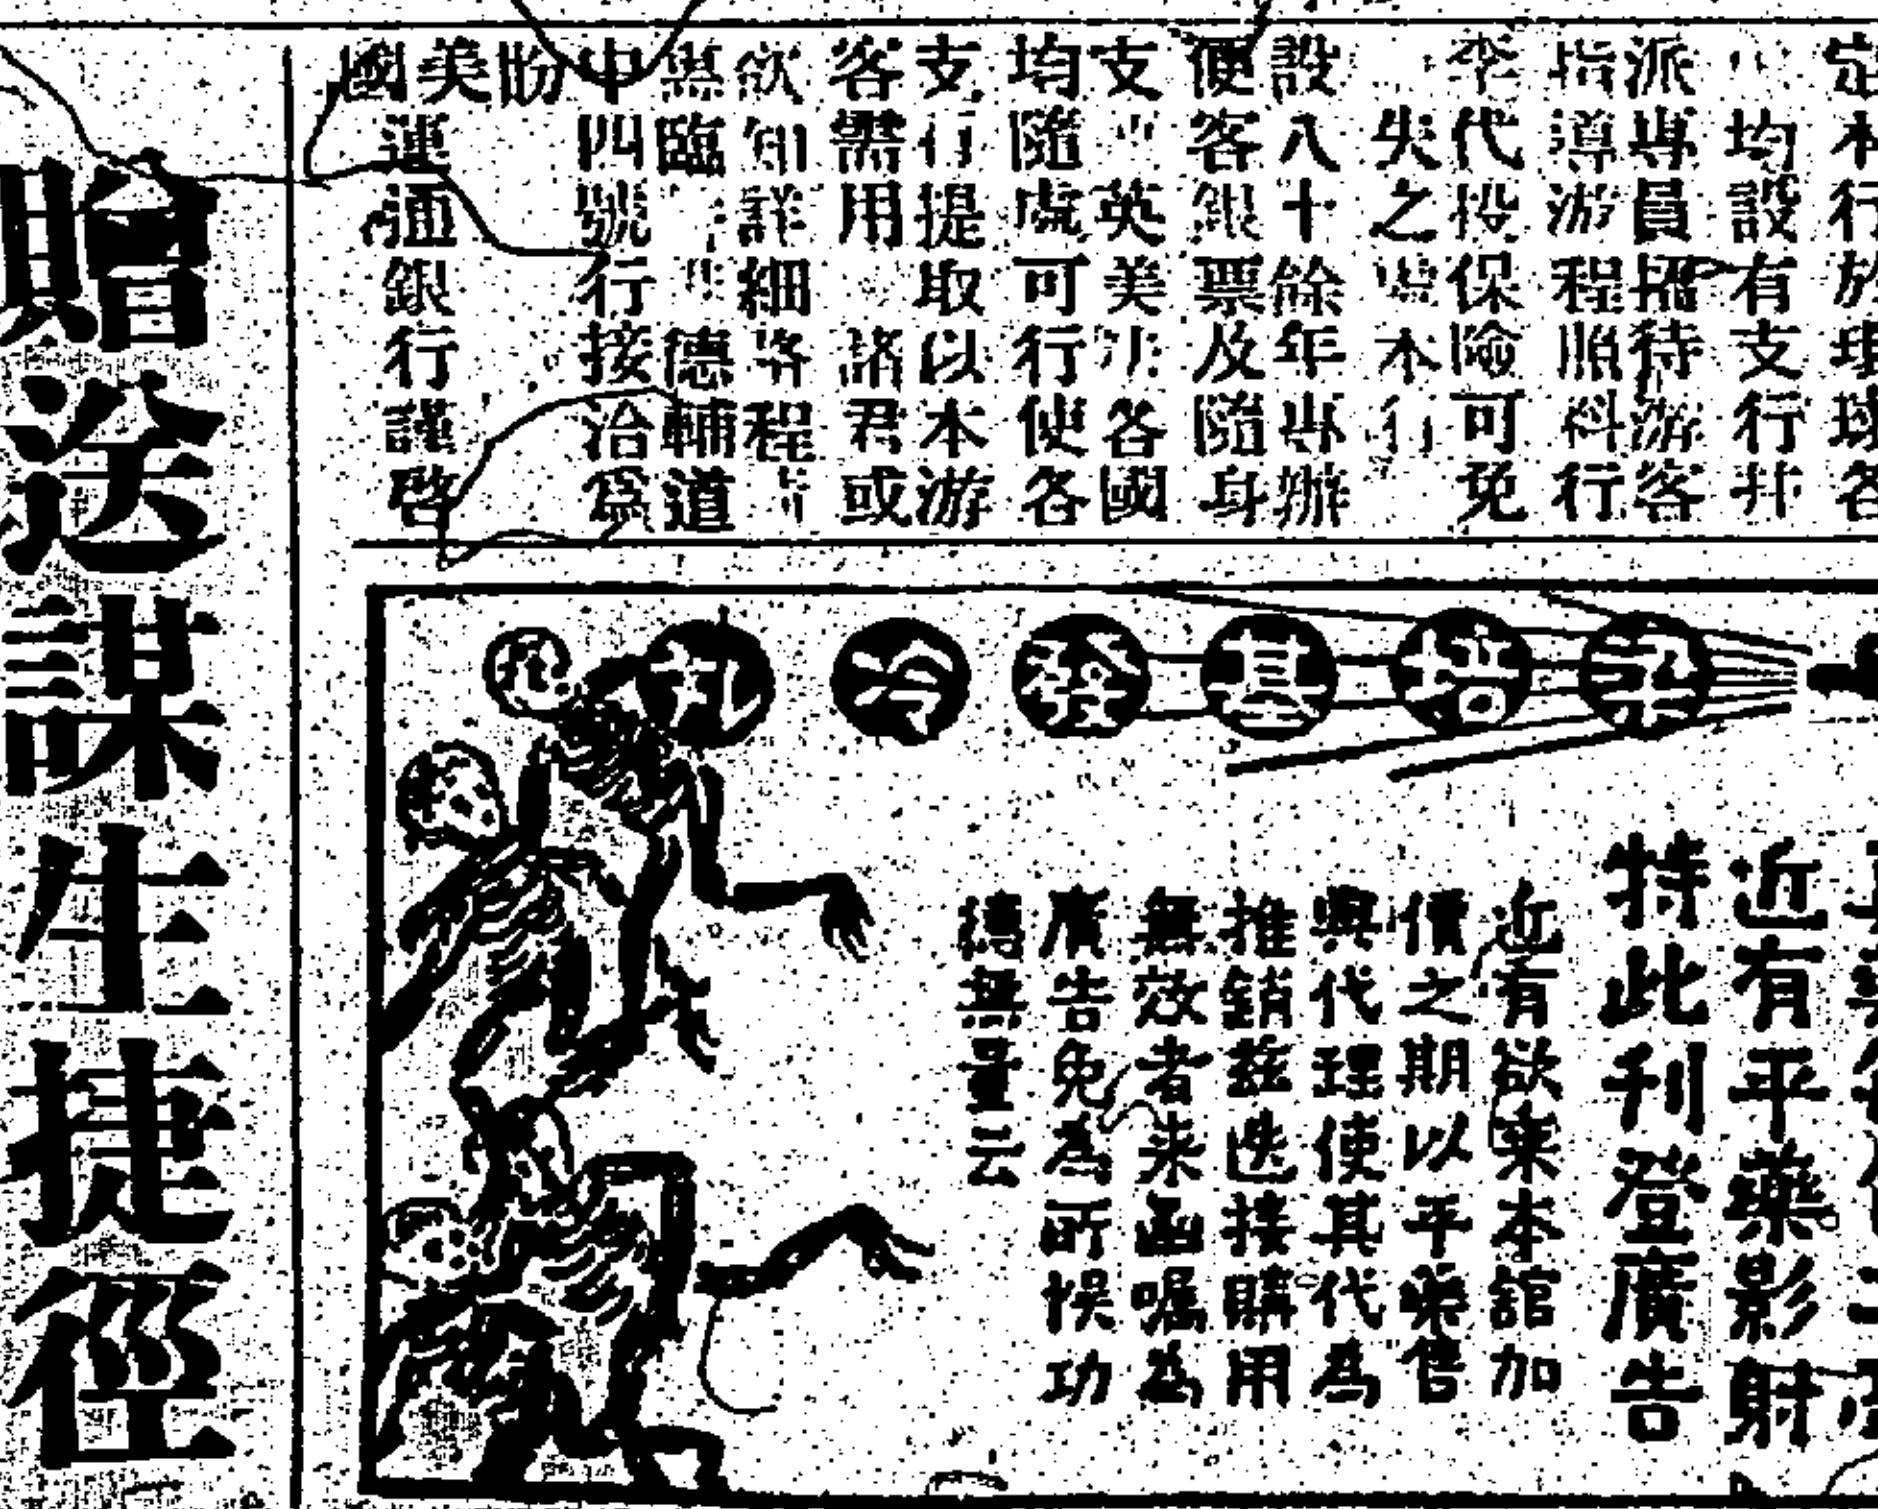 定本行於環球各
均設有支行幷
派專員招待游客
指導游程照料行
李代投保險可免
失之 本行
設八十餘年專辦
便客銀票及隨身
支 英美 各國
均隨處可行使各
支行提取以本游
客需用 諸君或
欲知詳細 程
臨 德輔道
中四號行接洽為
盼
美國運通銀行謹啓
梁培基發冷丸
近有平藥影射
特此刊登廣告
近有欲來本舘加
價之期以平藥售
與代理使其代為
推銷茲迭接購用
無效者来函囑為
廣告免為所悞功
德無量云
贈送謀生捷徑